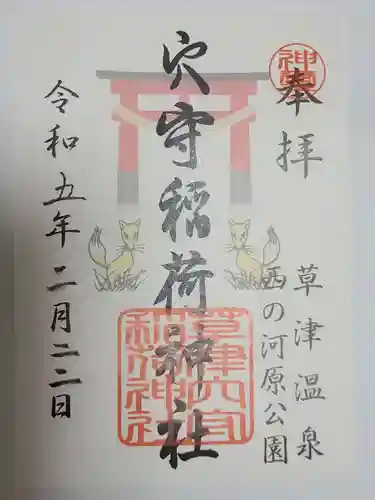 奉拝
草津温泉
西の河原公園
穴守稲荷神社
草津穴守
稲荷神社
令和五年二月二二日